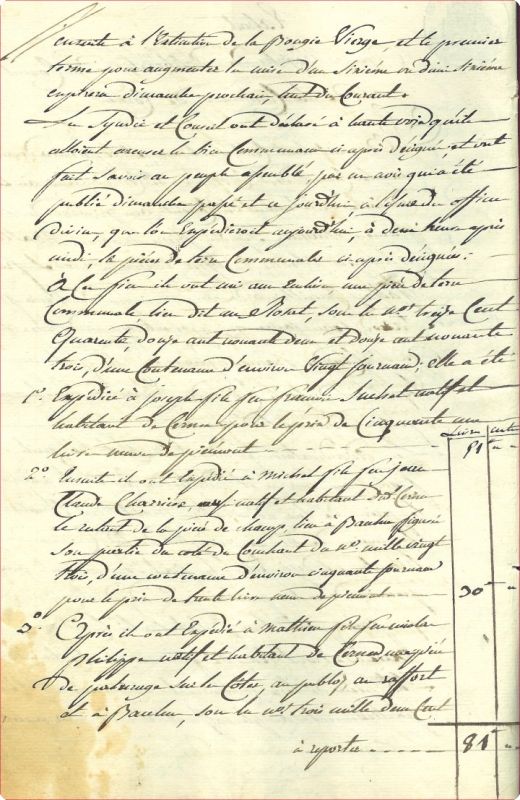 ensuite à l'Extinction de la Bougie Vierge, et le premier
terme pour augmenter la mise d'un Sixième ou demi Sixième
expirera dimanche prochain, huit du Courant.
Les Syndic et Conseil ont déclaré à haute voix qu'ils
alloient accenser les biens Communaux ci après désignés et ont
fait savoir au peuple assemblé par un avis qui a été
publié dimanche passé et ce jourd'hui à l'issue des offices
divins, que l'on Expédieroit aujourd'hui, à deux heures après
midi les pièces de terre Communales ci après désignées.
À ces fins ils ont mis aux Enchères une pièce de terre
Communale lieu dit au sous les nos treize Cent
Quarante, douze cent nonante deux et douze cent nonante
trois, d'une Contenance d'environ Vingt journaux; elle a été
1o. Expédiée à Joseph fils feu françois Suchet natif et
habitant de pour le prix de Cinquante une
livre neuve de piemont
Livres
51 "
2o. Ensuite ils ont Expédié à Michel fils feu jean
Claude natif et habitant dud.
le restant de la pièce de champ, lieu à figurée
Sous partie du coté du Couchant du no. mille vingt
trois, d'une contenance d'environ cinquante journaux
pour le prix de trente livres neuves de piemont
30 "
3o. Après ils ont Expédié à Mathieu fils feu nicolas
philippe natif et habitant de
de paturage sur les Côtes, au au raffort
et à sous les nos. trois mille deux Cent
à reporter
81 "